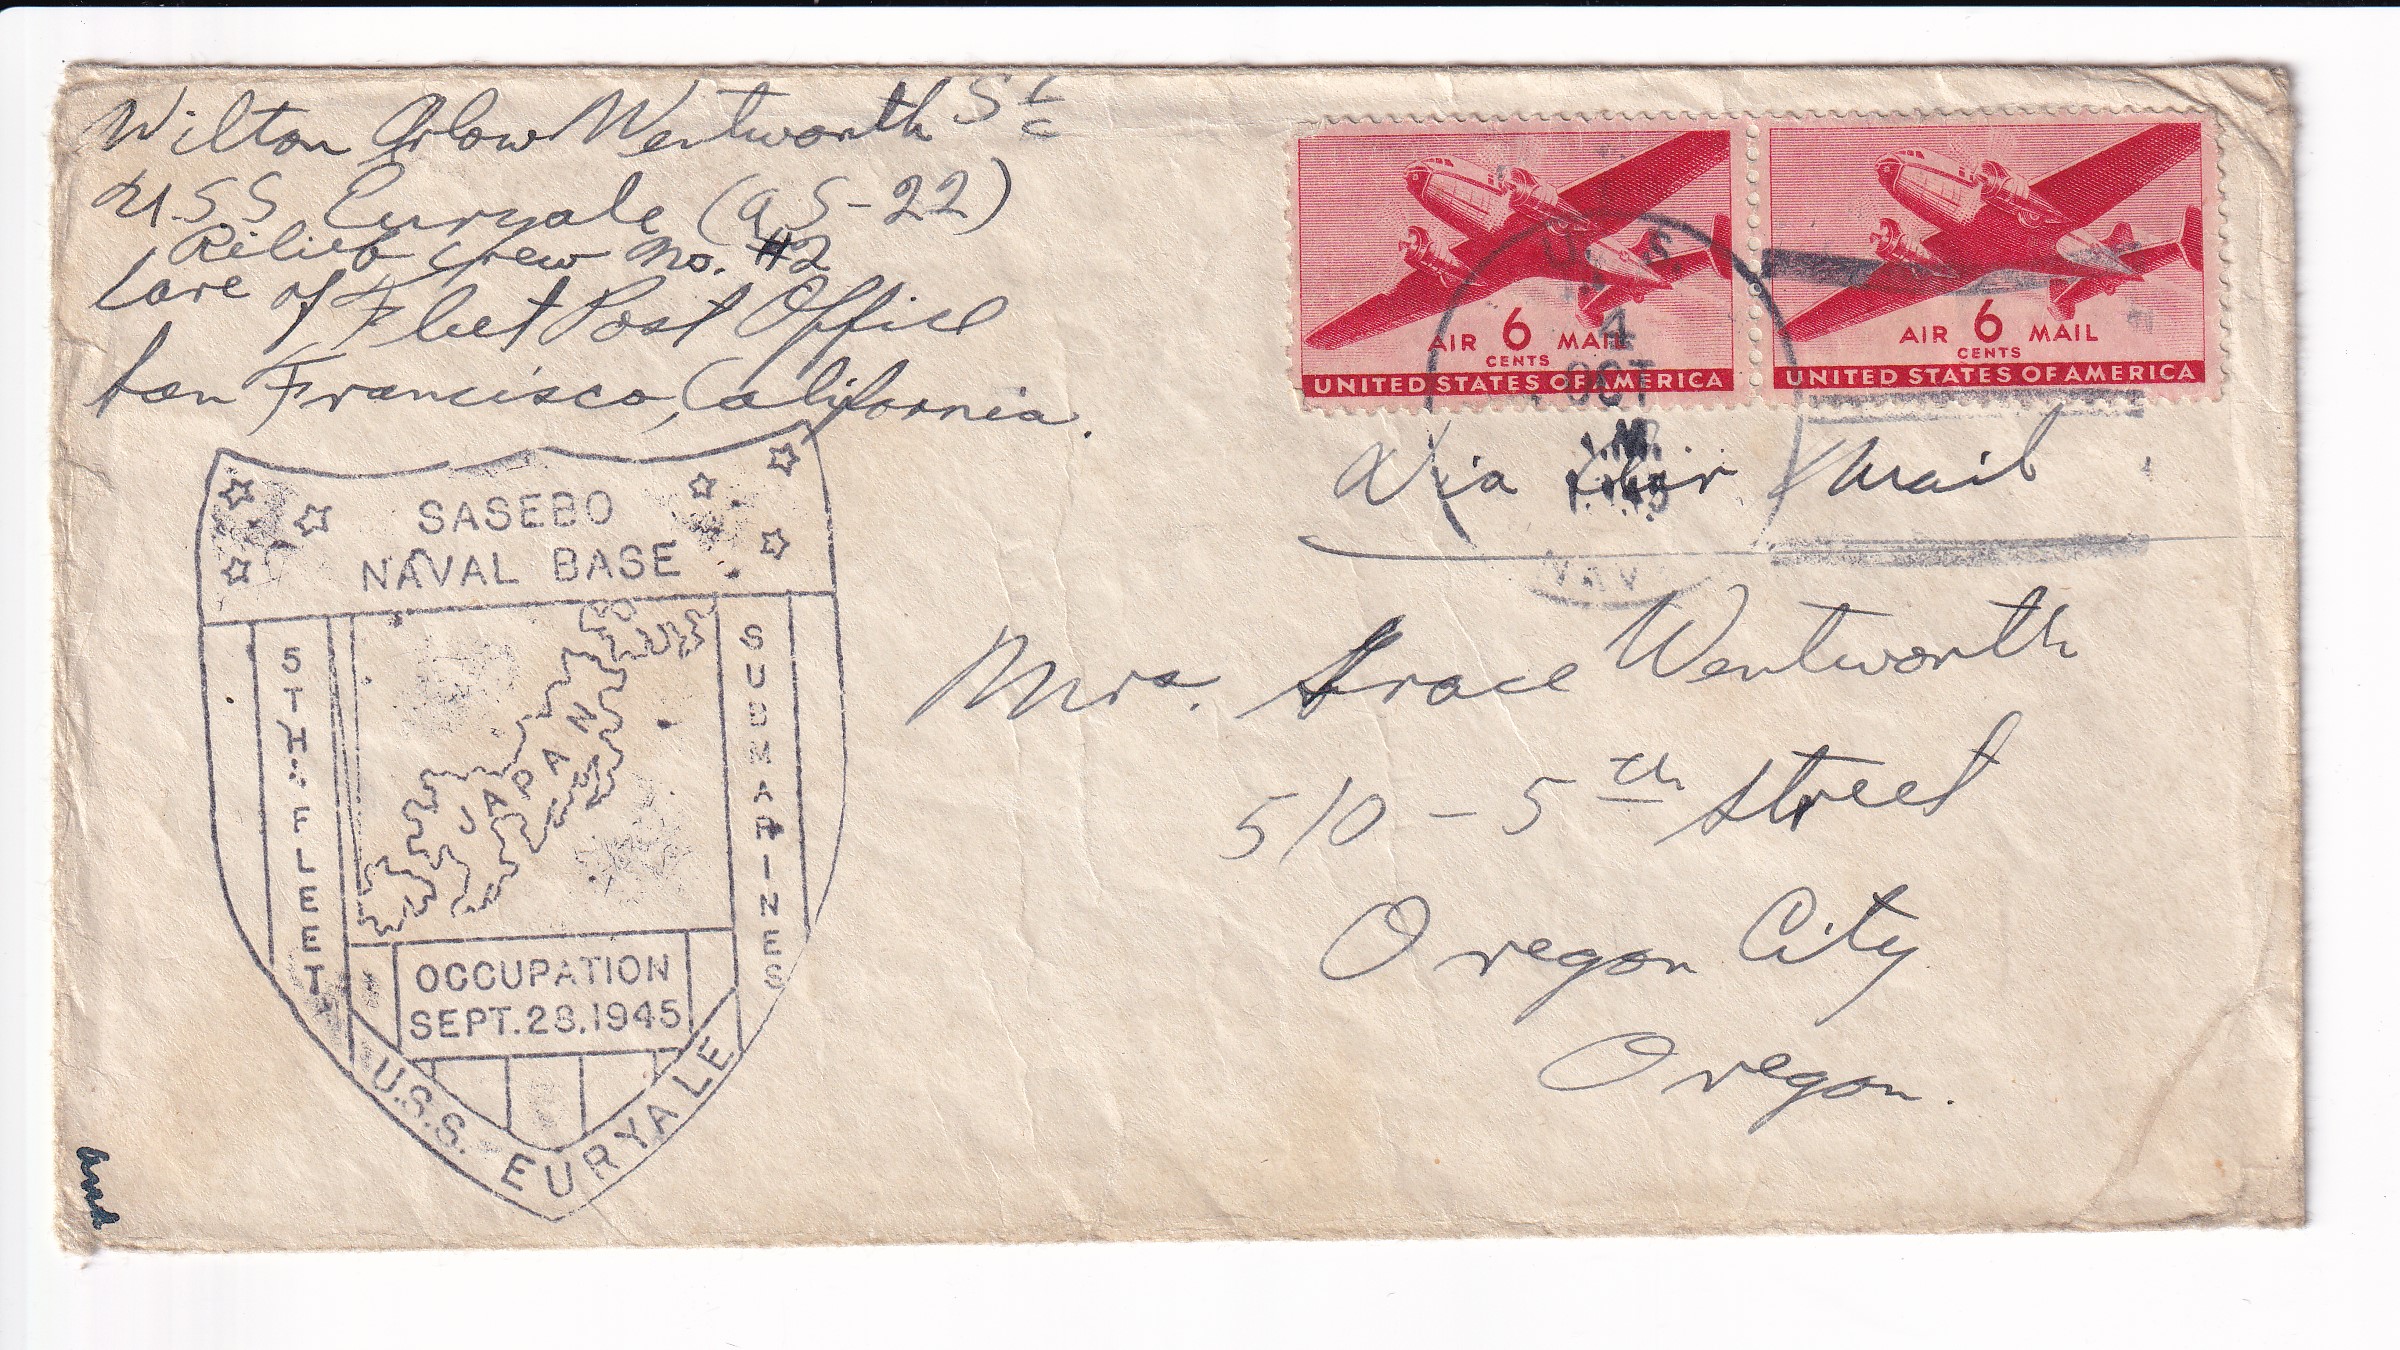 Wilton Orlow Wentworth S 1/c
U.S.S Euryale (aS-22)
Relief Crew No. #2
Care of Fleet Post Office
San Francisco, California.
AIR 6 MAIL
CENTS
UNITED STATES OF AMERICA
AIR 6 MAIL
CENTS
UNITED STATES OF AMERICA
U.S.
4
OCT
.M.
NAV
Via Air Mail
Mrs. Grace Wentworth
510 - 5th Street
Oregon City
Oregon.
SASEBO
NAVAL BASE
5TH FLEET
JAPAN
SUBMARINES
OCCUPATION
SEPT. 28, 1945
U.S.S. EURYALE